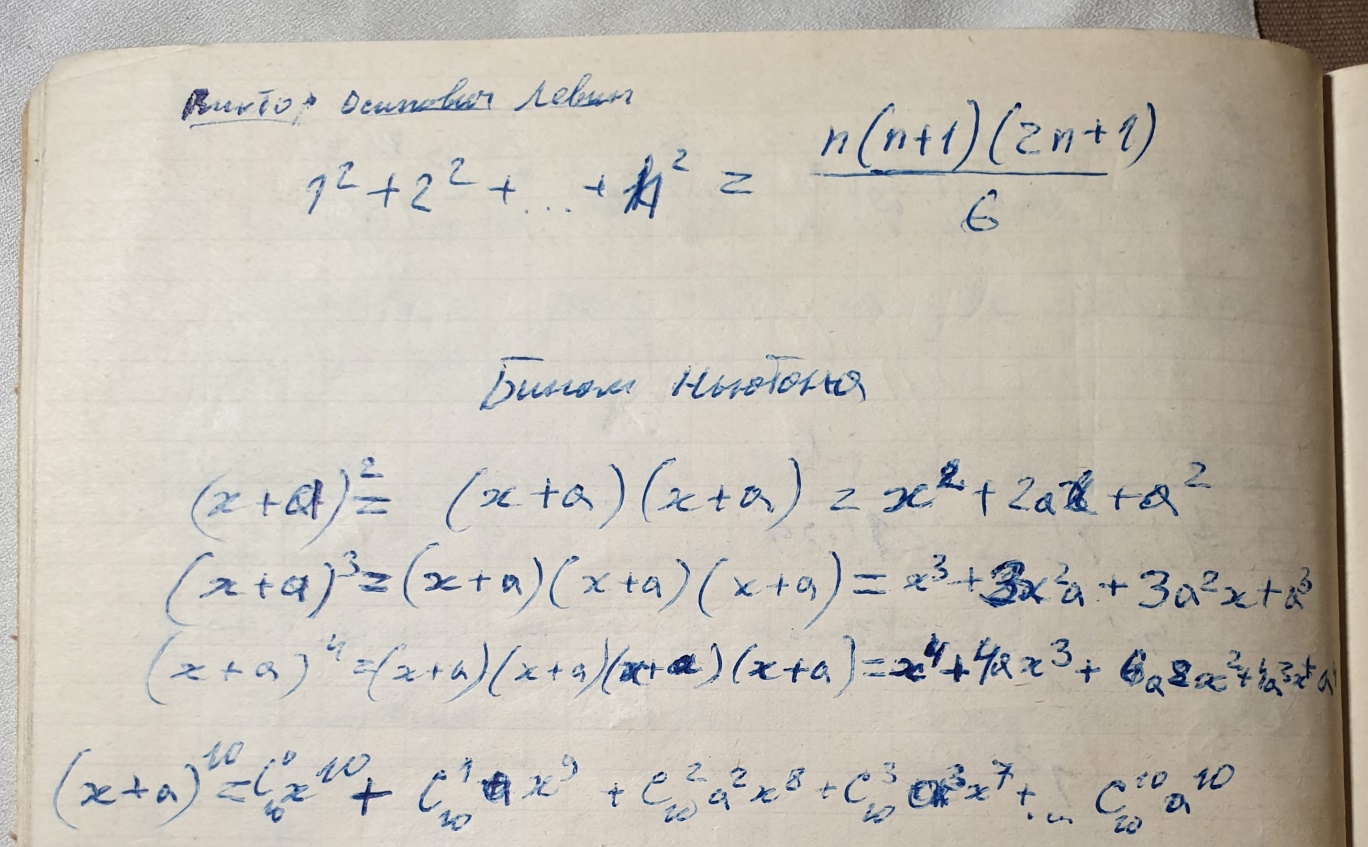 Виктор Осипович Левин
1² + 2² + ... + n² = n(n+1)(2n+1) / 6
Бином Ньютона
(x+a)² = (x+a)(x+a) = x² + 2ax + a²
(x+a)³ = (x+a)(x+a)(x+a) = x³ + 3x²a + 3a²x + a³
(x+a)⁴ = (x+a)(x+a)(x+a)(x+a) = x⁴ + 4ax³ + 6a²x² + 4a³x + a
(x+a)¹⁰ = C₁₀⁰x¹⁰ + C₁₀¹ax⁹ + C₁₀²a²x⁸ + C₁₀³a³x⁷ + ... C₁₀¹⁰a¹⁰